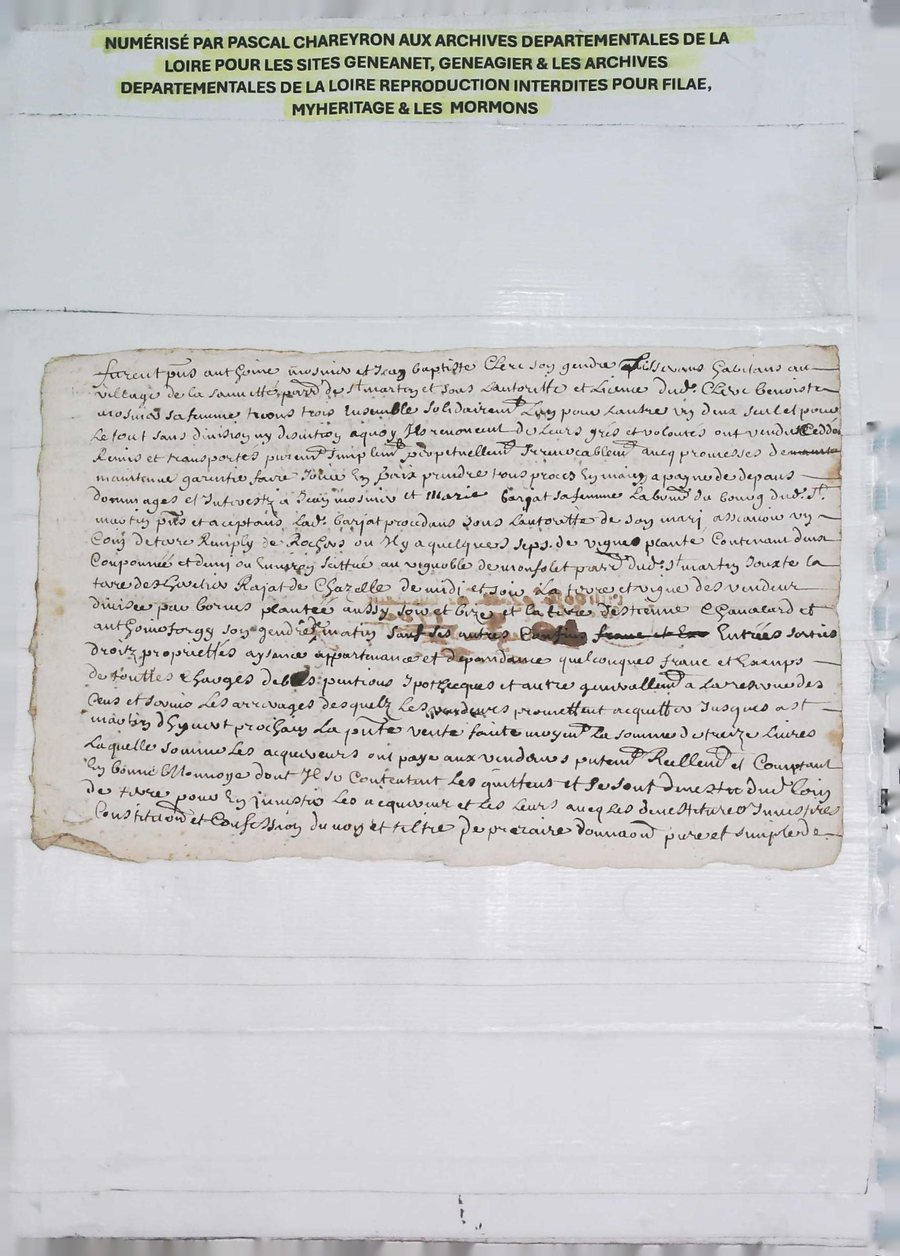 NUMÉRISÉ PAR PASCAL CHAREYRON AUX ARCHIVES DEPARTEMENTALES DE LA
LOIRE POUR LES SITES GENEANET, GENEAGIER & LES ARCHIVES
DEPARTEMENTALES DE LA LOIRE REPRODUCTION INTERDITES POUR FILAE,
MYHERITAGE & LES MORMONS
furent pns anthoine mosnier et Jean baptiste Clerc son gendre habitans au
village de la de st martin et sous Lautoritte et Licence dud. Clerc benoiste
mosnier sa femme tous trois Ensemble solidairemt Lun pour Lautre un deux seul et pour
Le tout sans division ny discution aquoy Ils renoncent de Leurs grés et volontés ont vendus Ceddés
Remis et transportés puremt simplemt perpetuellemt Irrevocablemt avecq promesses de
maintenir garentir faire Jouir En paix prendre tous proces En main a payne de depans
dommages et Interestz a Jean mosnier et Marie barjat sa femme Laboureur du bourg dud. St
martin pns et aceptans Lad. barjat procedans sous Lautoritte de son mari assavoir un
Coin de terre Remply de Rochers ou Il y a quelques seps de vignes plante Contenant deux
Couponnée et demi ou Environ scittué au vignoble de parr dud. St martin Jouxte la
terre des Rajat de Chazelle de midi et soir La terre et vigne des vendeur
divisée par bornes plantée aussy soir et bize et la terre destienne Chavalard et
anthoine forgy son gendre matin sauf ses autres Confins franc et Entrées sorties
droitz proprietés aysance appartenance et dependance quelconques franc et Exemps
de touttes Charges debtes pentions Ipotheques et autre generallemt a La reserve des
Cens et servis Les arrerages desquelz Les vendeurs promettent acquitter Jusques a st
martin d'hyvert prochain La pnte vente faite moyent La somme de treize Livres
Laquelle somme Les acquereurs ont payé aux vendeurs puremt Reellemt et Comptant
En bonne Monnoye dont Il se Contentant Les quittent et se sont devestu dud. Coin
de terre pour En Investir Les acquereur et Les Leurs avecq Les devestitures Investires
Constitution et Confession du nom et tiltre De precaire donnaon pure et simple de